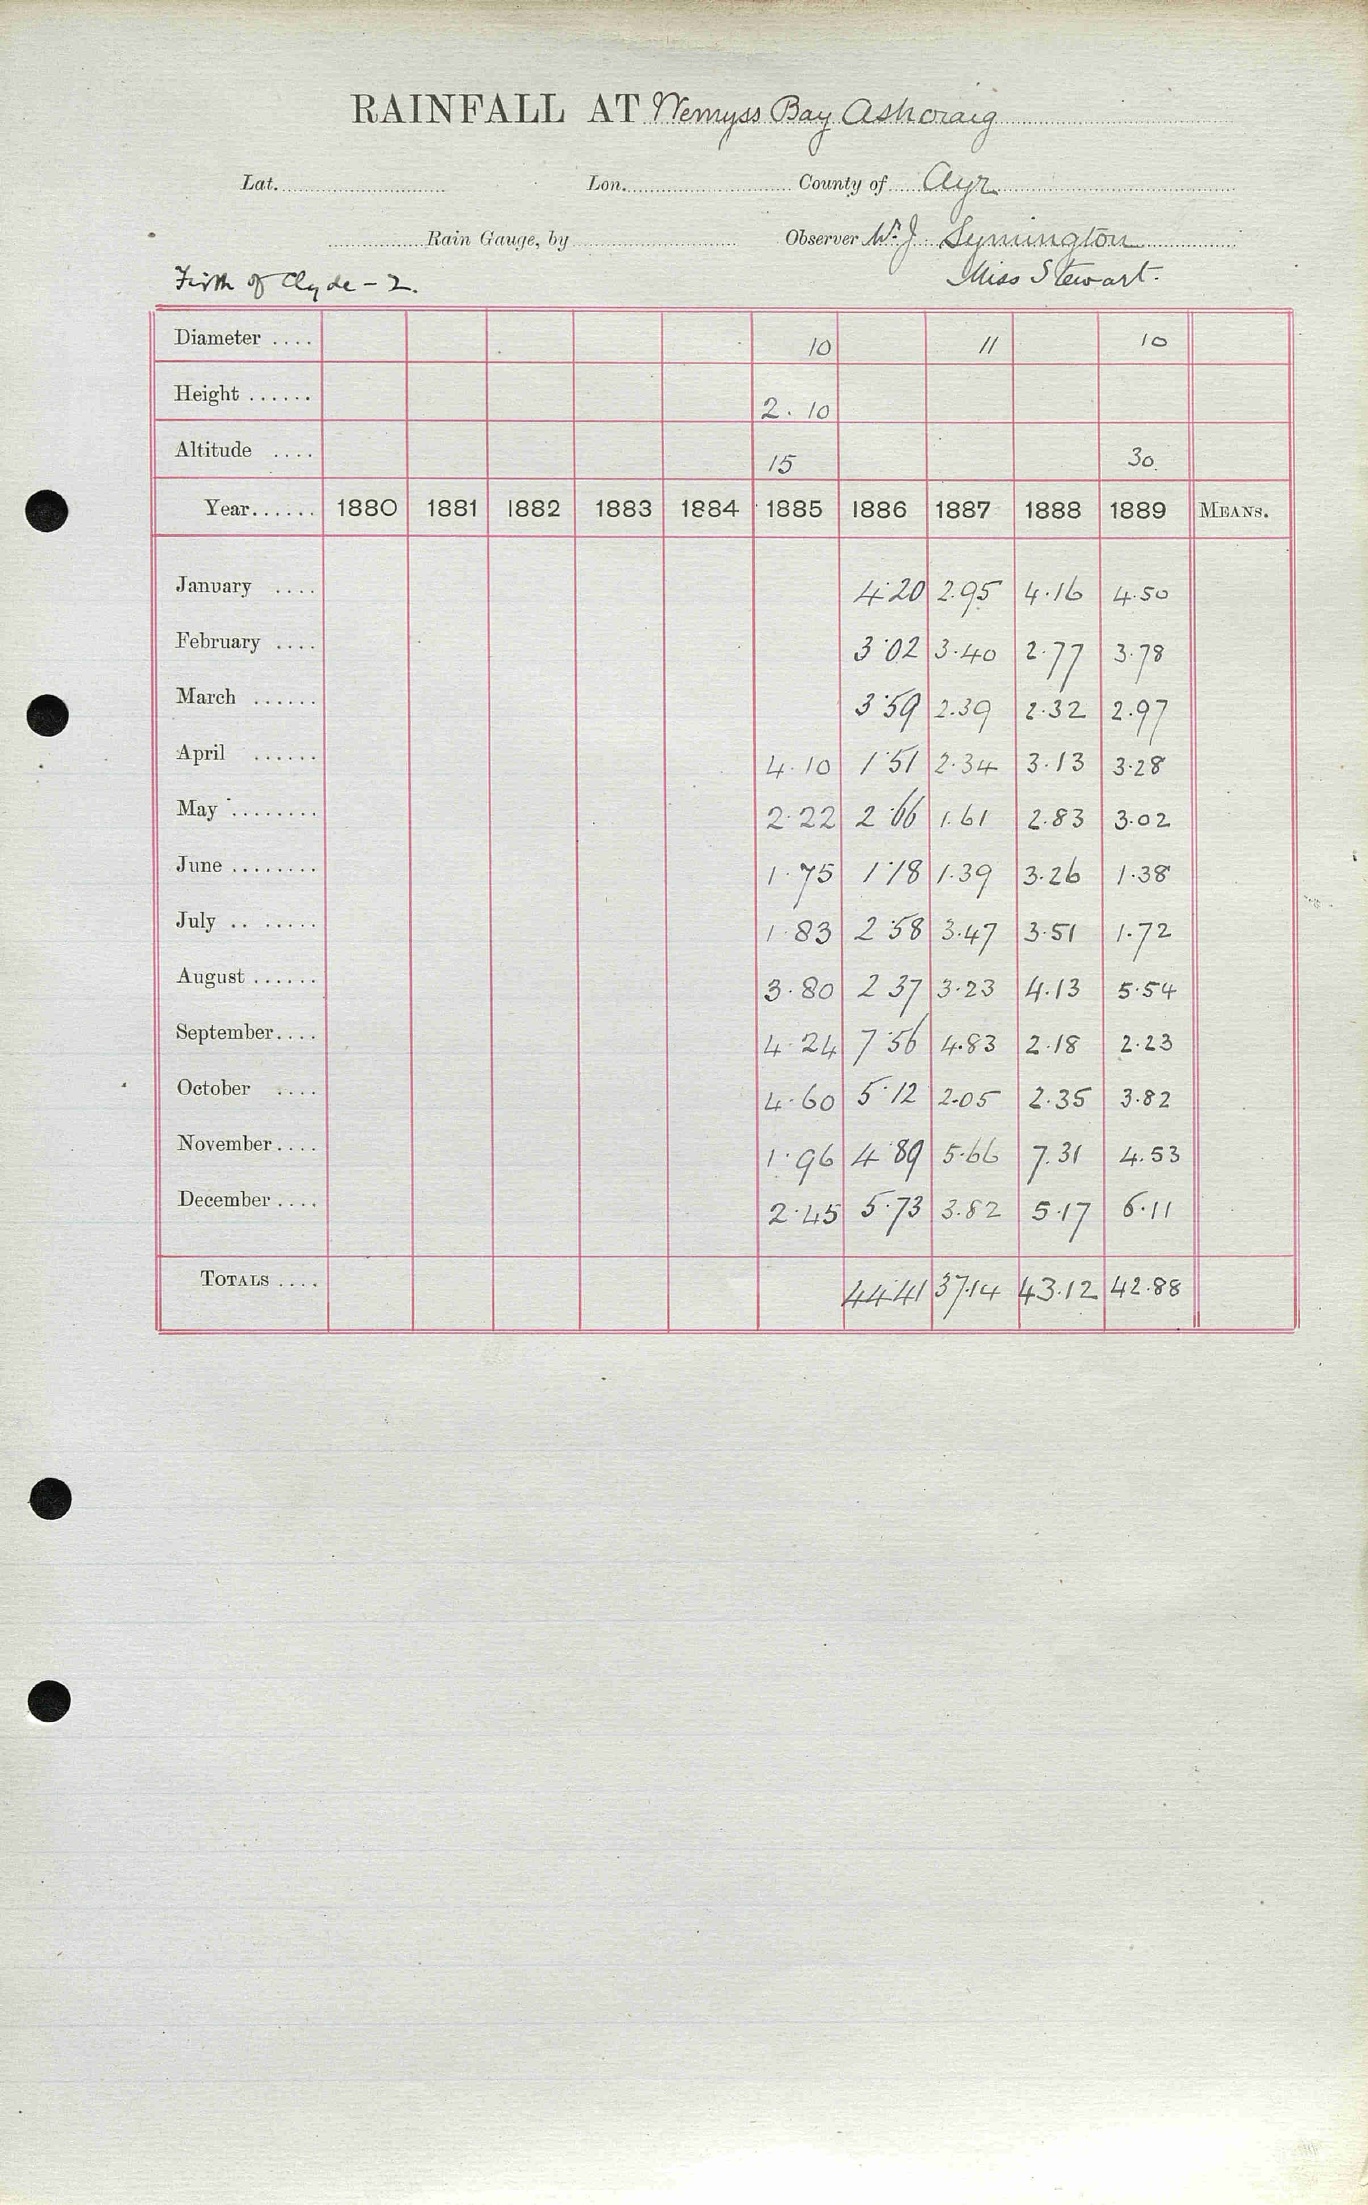 RAINFALL AT Wemyss Bay Ashcraig
Lat. Lon. County of Ayr
Rain Gauge, by Observer Wm J Symington
Firth of Clyde - 2. Miss Stewart.
Diameter .... 10 11 10
Height ...... 2. 10
Altitude .... 15 30
Year...... 1880 1881 1882 1883 1884 1885 1886 1887 1888 1889 MEANS.
January .... 4.20 2.95 4.16 4.50
February .... 3.02 3.40 2.77 3.78
March ...... 3.59 2.39 2.32 2.97
April ...... 4.10 1.51 2.34 3.13 3.28
May ........ 2.22 2.66 1.61 2.83 3.02
June ........ 1.75 1.18 1.39 3.26 1.38
July .. ...... 1.83 2.58 3.47 3.51 1.72
August ...... 3.80 2.37 3.23 4.13 5.54
September.... 4.24 7.56 4.83 2.18 2.23
October .... 4.60 5.12 2.05 2.35 3.82
November.... 1.96 4.89 5.66 7.31 4.53
December .... 2.45 5.73 3.82 5.17 6.11
TOTALS .... 44.41 37.14 43.12 42.88